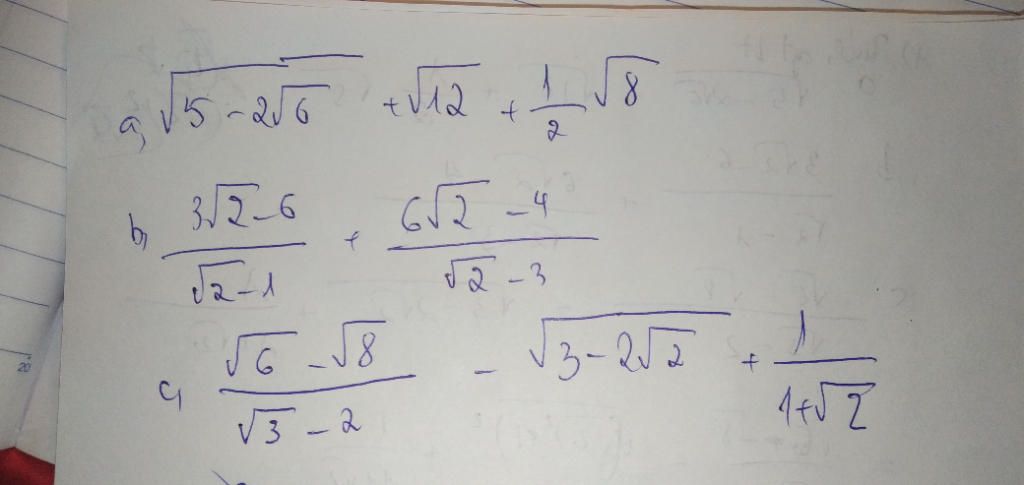 a, √(5-2√6) + √12 + 1/2 √8
b, (3√2-6)/(√2-1) + (6√2-4)/(√2-3)
c, (√6-√8)/(√3-2) - √(3-2√2) + 1/(1+√2)
20